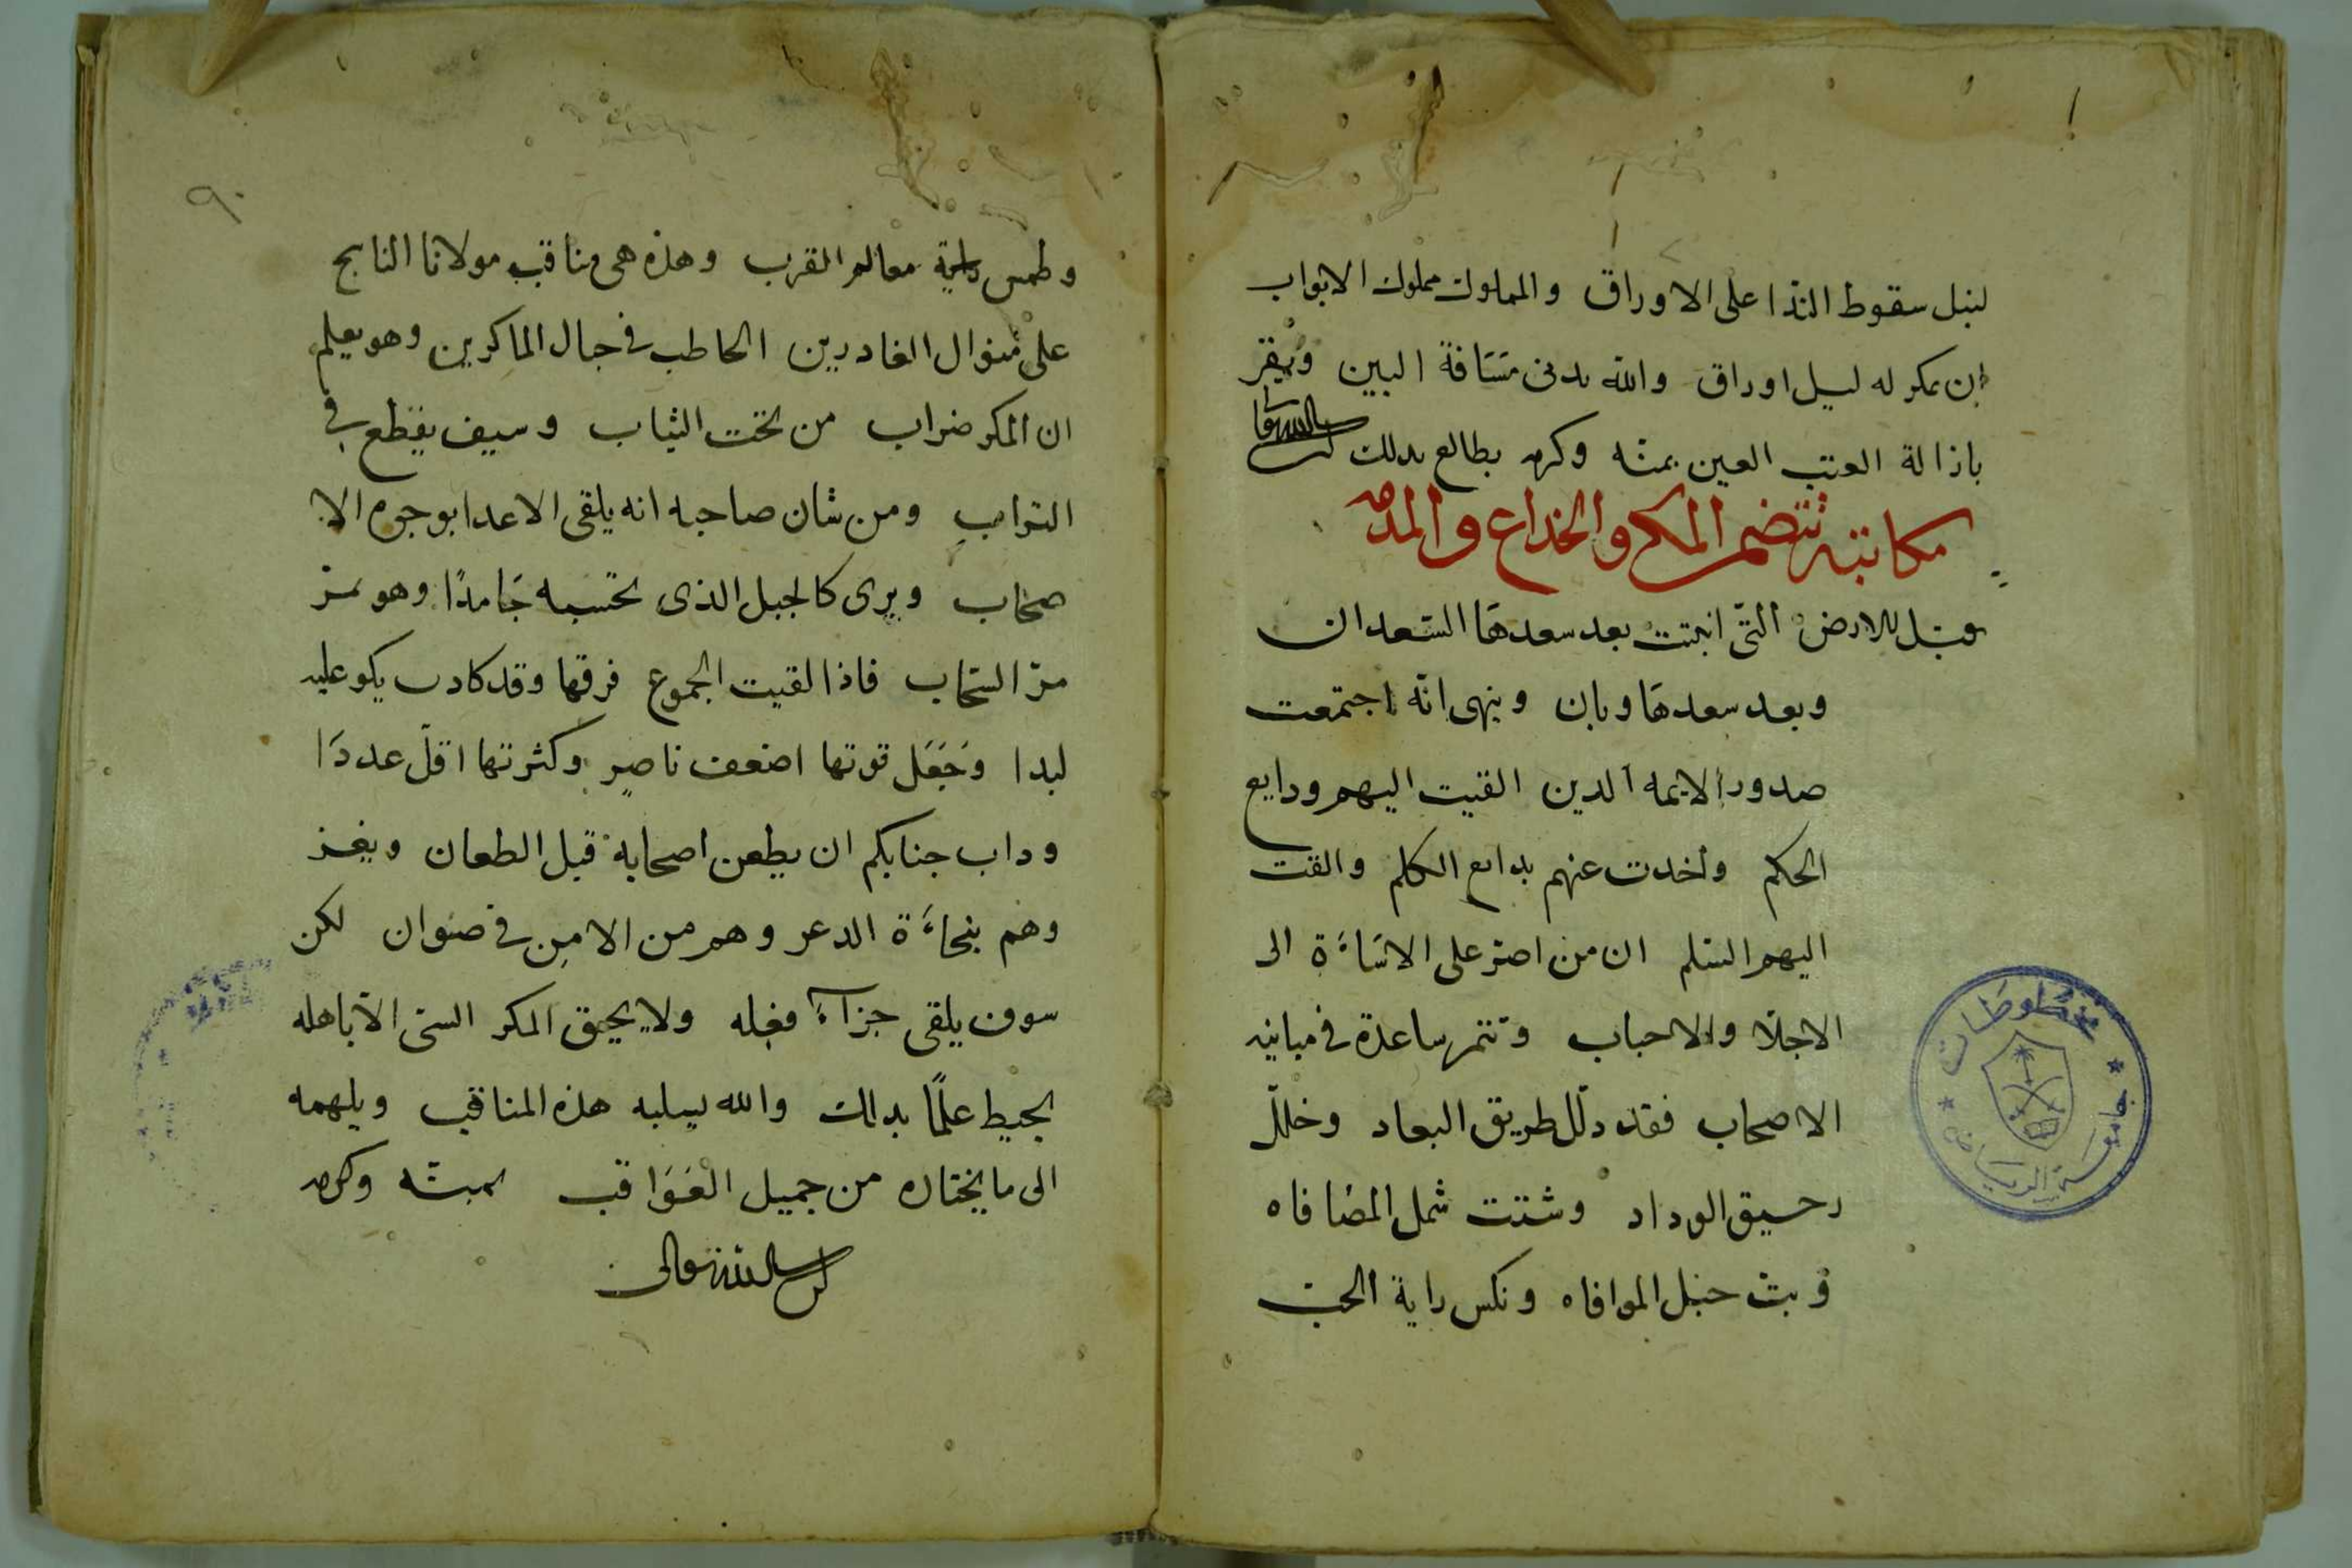 لنيل سقوط الندا على الاوراق والمملوك مملوك الابواب
ان يكر له ليل اوراق والله يدنى مسَافة البين ويقر
باذالة العتب العين بمنه وكرمه يطالع بدلك ان شا الله تعا
مكاتبة تتضمن المكر والخداع والمداه
يقبل للارض التى انبتت بعد سعدهَا السّعدان
وبعد سعدهَا وبان وينهى انه اجتمعت
صدور الايمه الدين القيت اليهم ودايع
الحكم واخدت عنهم بدايع الكلم والقت
اليهم السلم ان من اصرّ على الاسَاءَة الى
الاجلّا والاحباب وتنمر ساعدة فى مباينه
الاصحاب فقد دلّل طريق البعاد وخلل
رحيق الوداد وشتت شمل المصَافاه
وبتّ حبل الموافاه ونكس راية الحبّ
وطمس معالم القرب وهذه هى مناقب مولانا الناسج
على منوال الغادرين الحاطب فى حبال الماكرين وهو يعلم
ان المكر ضراب من تحت الثياب وسيف يقطع فى
التراب ومن شان صاحبه انه يلقى الاعدا بوجوه الا
صحاب ويرى كالجبل الذى تحسبه جَامدًا وهو يمرّ
مرّ السّحاب فاذا لقيت الجموع فرقها وقد كادت يكو عليه
لبدا وجَعَل قوتها اضعف ناصرٍ وكثرتها اقلّ عددَا
وداب جنابكم ان يطعن اصحابه قبل الطعان ويغز
وهم بنجاءَة الدعر وهم من الامن فى صنوان لكن
سوف يلقى جزآءَ فعله ولا يحيق المكر السىّ الا باهله
يحيط علمًا بدلك والله يسلبه هذه المناقب ويلهمه
الى ما يختاره من جميل العَوَاقب بمنّه وكرمه
ان شا الله تعالى
٩٠
مخطوطات
جامعة الرياض